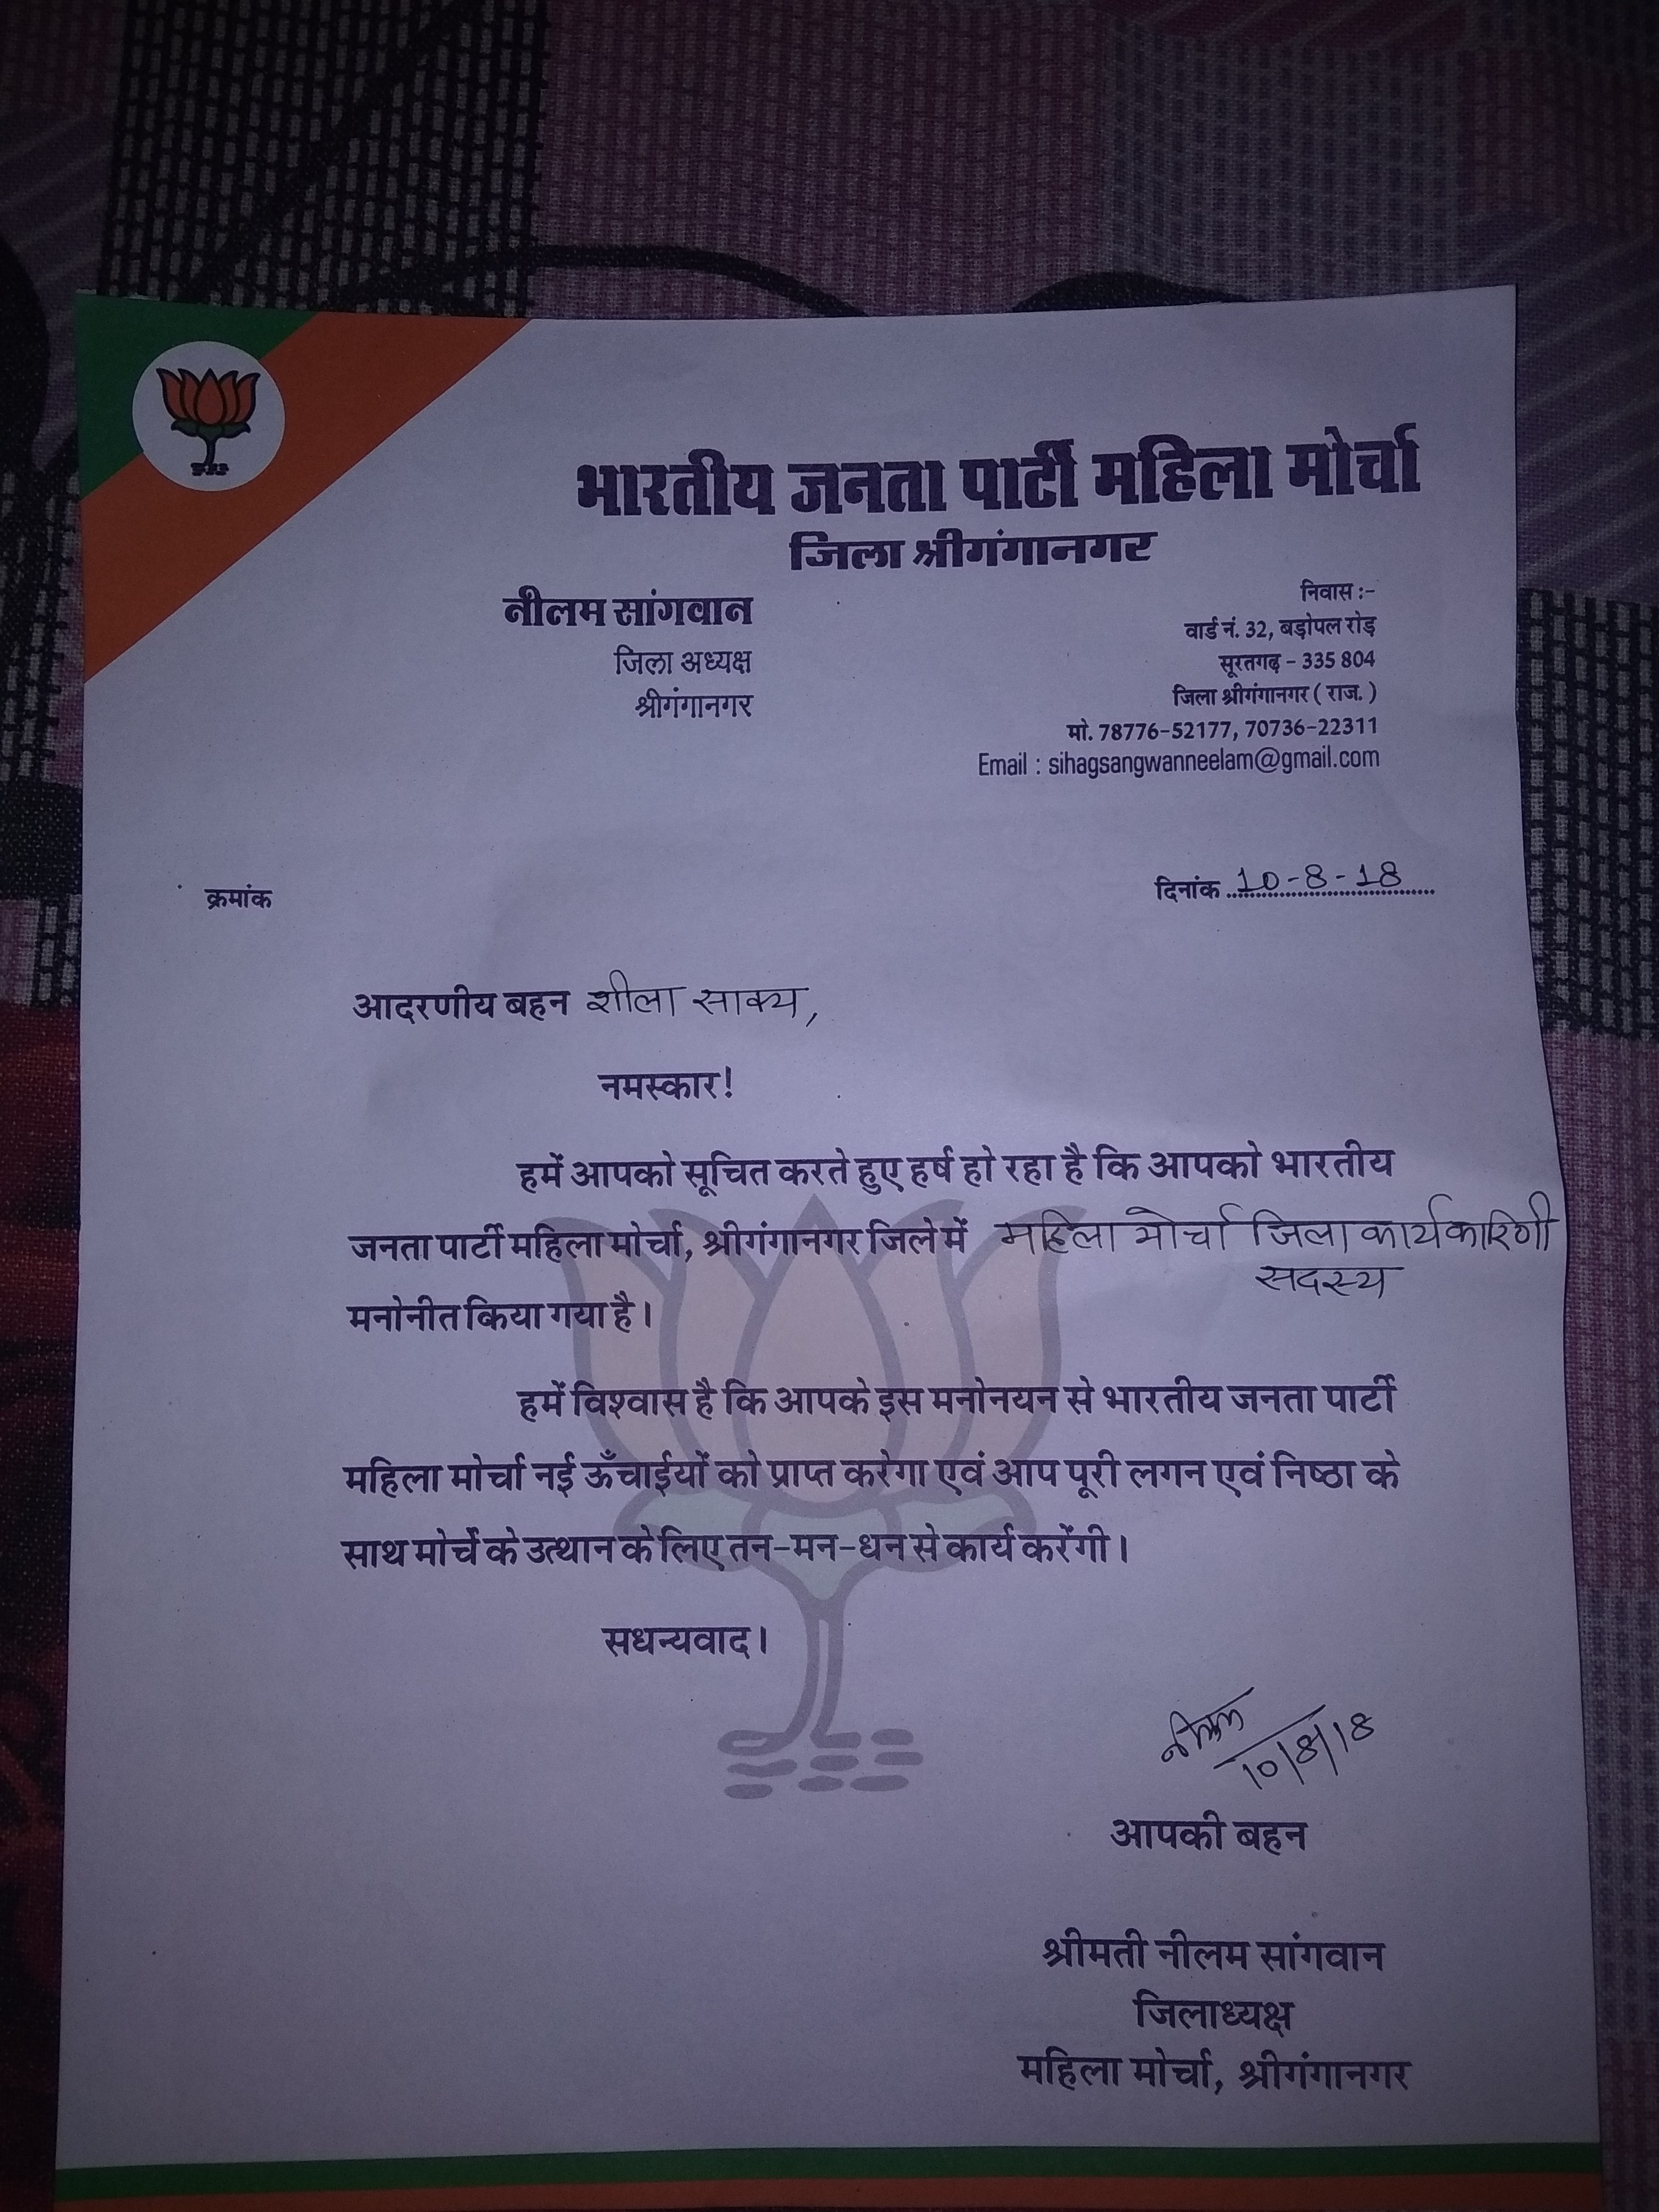 भारतीय जनता पार्टी महिला मोर्चा
जिला श्रीगंगानगर
नीलम सांगवान
जिला अध्यक्ष
श्रीगंगानगर
निवास :-
वार्ड नं. 32, बड़ोपल रोड़
सूरतगढ़ - 335 804
जिला श्रीगंगानगर ( राज. )
मो. 78776-52177, 70736-22311
Email : sihagsangwanneelam@gmail.com
क्रमांक
दिनांक 10-8-18
आदरणीय बहन शीला साक्य,
नमस्कार!
हमें आपको सूचित करते हुए हर्ष हो रहा है कि आपको भारतीय
जनता पार्टी महिला मोर्चा, श्रीगंगानगर जिले में महिला मोर्चा जिला कार्यकारिणी
सदस्य
मनोनीत किया गया है।
हमें विश्वास है कि आपके इस मनोनयन से भारतीय जनता पार्टी
महिला मोर्चा नई ऊँचाईयों को प्राप्त करेगा एवं आप पूरी लगन एवं निष्ठा के
साथ मोर्चे के उत्थान के लिए तन-मन-धन से कार्य करेंगी।
सधन्यवाद।
नीलम
10/8/18
आपकी बहन
श्रीमती नीलम सांगवान
जिलाध्यक्ष
महिला मोर्चा, श्रीगंगानगर